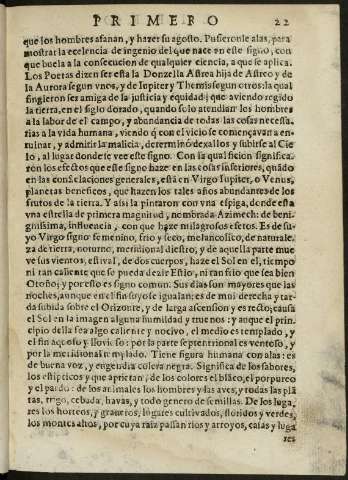 PRIMERO 22
que los hombres afanan, y hazer su agosto. Pusieronle alas, para
mostrar la ecelencia de ingenio del que nace en este signo, con
que buela a la consecucion de qualquier ciencia, a que se aplica.
Los Poetas dizen ser esta la Donzella Astrea hija de Astreo y de
la Aurora segun vnos, y de Iupiter y Themis segun otros: la qual
fingieron ser amiga de la justicia y equidad: que aviendo regido
la tierra, en el siglo dorado, quando solo atendian los hombres
a la labor del campo, y abundancia de todas las cosas necessa-
rias a la vida humana, viendo que con el vicio se començavan a en
ruinar, y admitir la malicia, determinó dexallos y subirse al Cie
lo, al lugar donde se vee este signo. Con la qual ficion significa-
ron los efectos que este signo haze en las cosas inferiores, quãdo
en las constelaciones generales, esta en Virgo Iupiter, o Venus,
planetas beneficos, que hazen los tales años abundantes de los
frutos de la tierra. Y assi la pintaron con vna espiga, donde esta
vna estrella de primera magnitud, nombrada Azimech: de beni-
gnissima, influencia, con que haze milagrosos efetos. Es de su-
yo Virgo signo femenino, frio y seco, melancolico, de naturale-
za de tierra, noturno, meridional, diestro, y de aquella parte mue
ve sus vientos, estival, de dos cuerpos, haze el Sol en el, tiempo
ni tan caliente que se pueda dezir Estio, ni tan frio que sea bien
Otoño; y por esto es signo comun. Sus dias son mayores que las
noches, aunque en el fin suyo se igualan: es de mui derecha y tar-
da subida sobre el Orizonte, y de larga ascension y es recto; causa
el Sol en la imagen alguna humidad y truenos: y aunque el prin-
cipio della sea algo caliente y nocivo, el medio es templado, y
el fin aquoso y llovioso: por la parte septentrional es ventoso, y
por la meridional templado. Tiene figura humana con alas: es
de buena voz, y engendra colera negra. Significa de los sabores,
los estipticos y que aprietan; de los colores el blãco, el porpureo
y el pardo: de los animales los hombres y las aves, y todas las plã
tas, trigo, cebada, havas, y todo genero de semillas. De los luga-
res los hortenses, y graneros, lugares cultivados, floridos y verdes,
los montes altos, por cuya raiz passan rios y arroyos, casas y luga
res